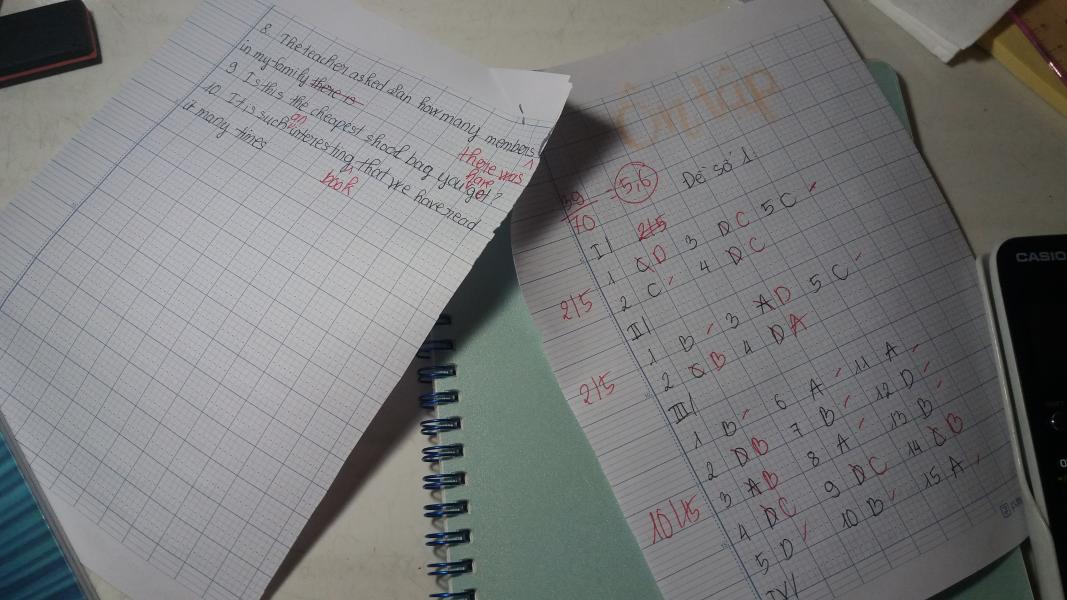 8. The teacher asked Lan how many members
in my family there is there was
9. Is this the cheapest shool bag you got have ?
10. It is such an interesting book that we have read
it many times
Ôn tập
Đề số 1.
39/70 = 5,6
I/ 2/5
1 D 3 D C 5 C
2 C 4 D C
2/5
II/
1 B 3 A D 5 C
2 B 4 D A
2/5
III/
1 B 6 A 11 A
2 D B 7 B 12 D
3 A B 8 A 13 B
4 D C 9 D C 14 B
5 D 10 B 15 A
10/15
IV/
CASIO